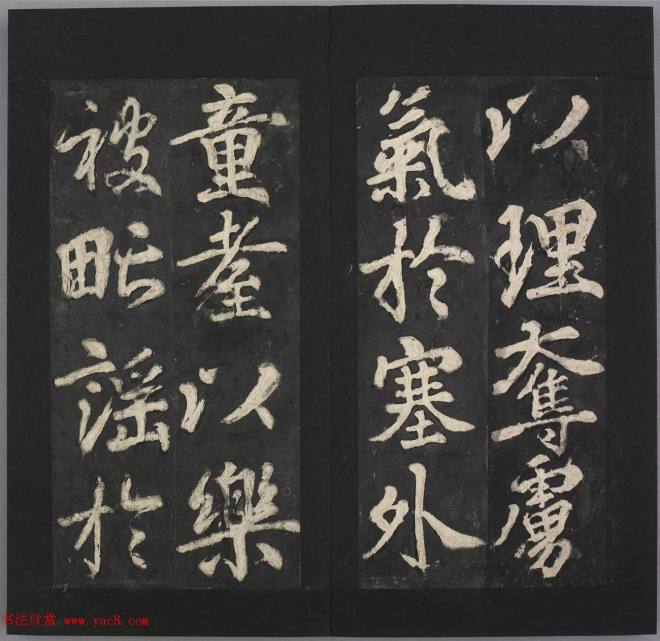 以理奪虜
氣於塞外
童耋以樂
被甿謠於
书法欣赏 www.yac8.com